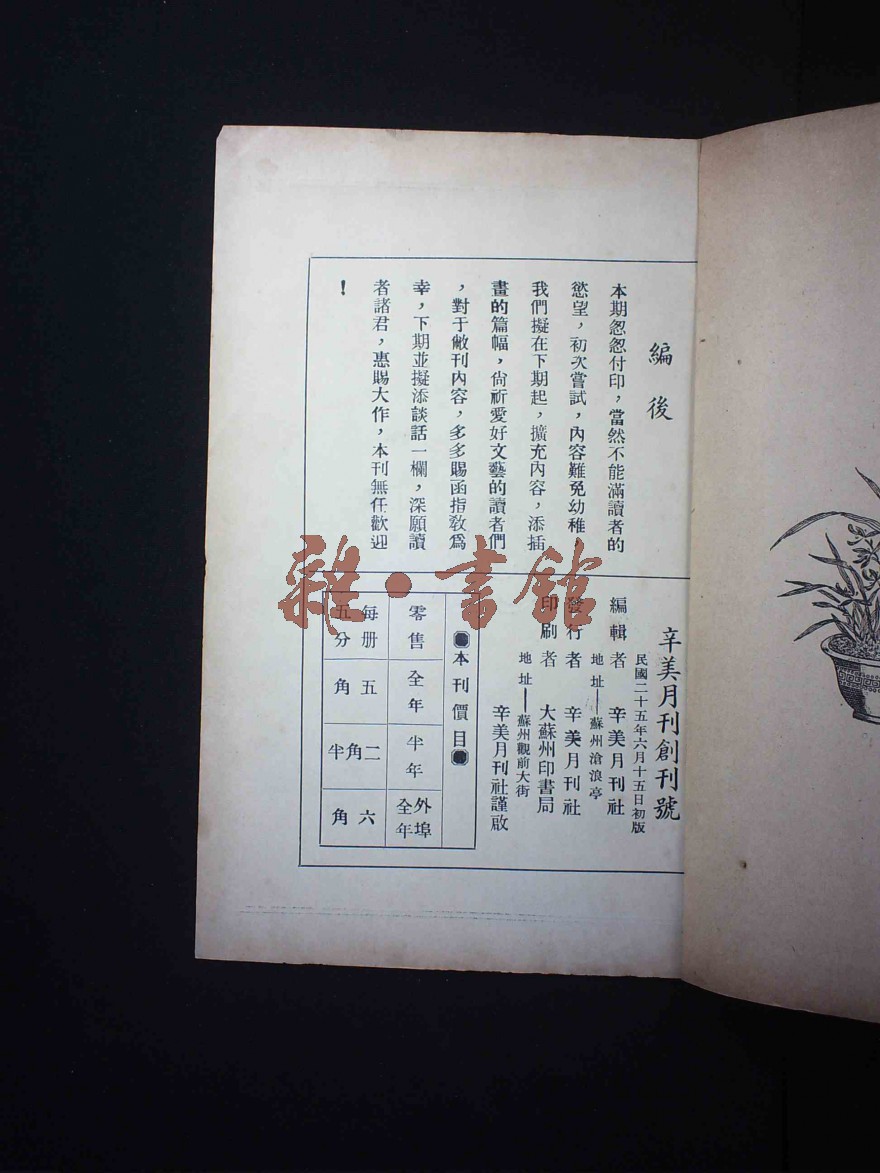 編後
本期怱怱付印，當然不能滿讀者的
慾望，初次嘗試，內容難免幼稚，
我們擬在下期起，擴充內容，添插
畫的篇幅，尙祈愛好文藝的讀者們
，對于敝刊內容，多多賜函指敎爲
幸，下期並擬添談話一欄，深願讀
者諸君，惠賜大作，本刊無任歡迎
！
辛美月刊創刊號
民國二十五年六月十五日初版
編輯者 辛美月刊社
地址——蘇州滄浪亭
發行者 辛美月刊社
印刷者 大蘇州印書局
地址——蘇州觀前大街
辛美月刊社謹啟
本刊價目
零售 每册五分
全年 五角
半年 二角半
外埠全年 六角
雜·書館